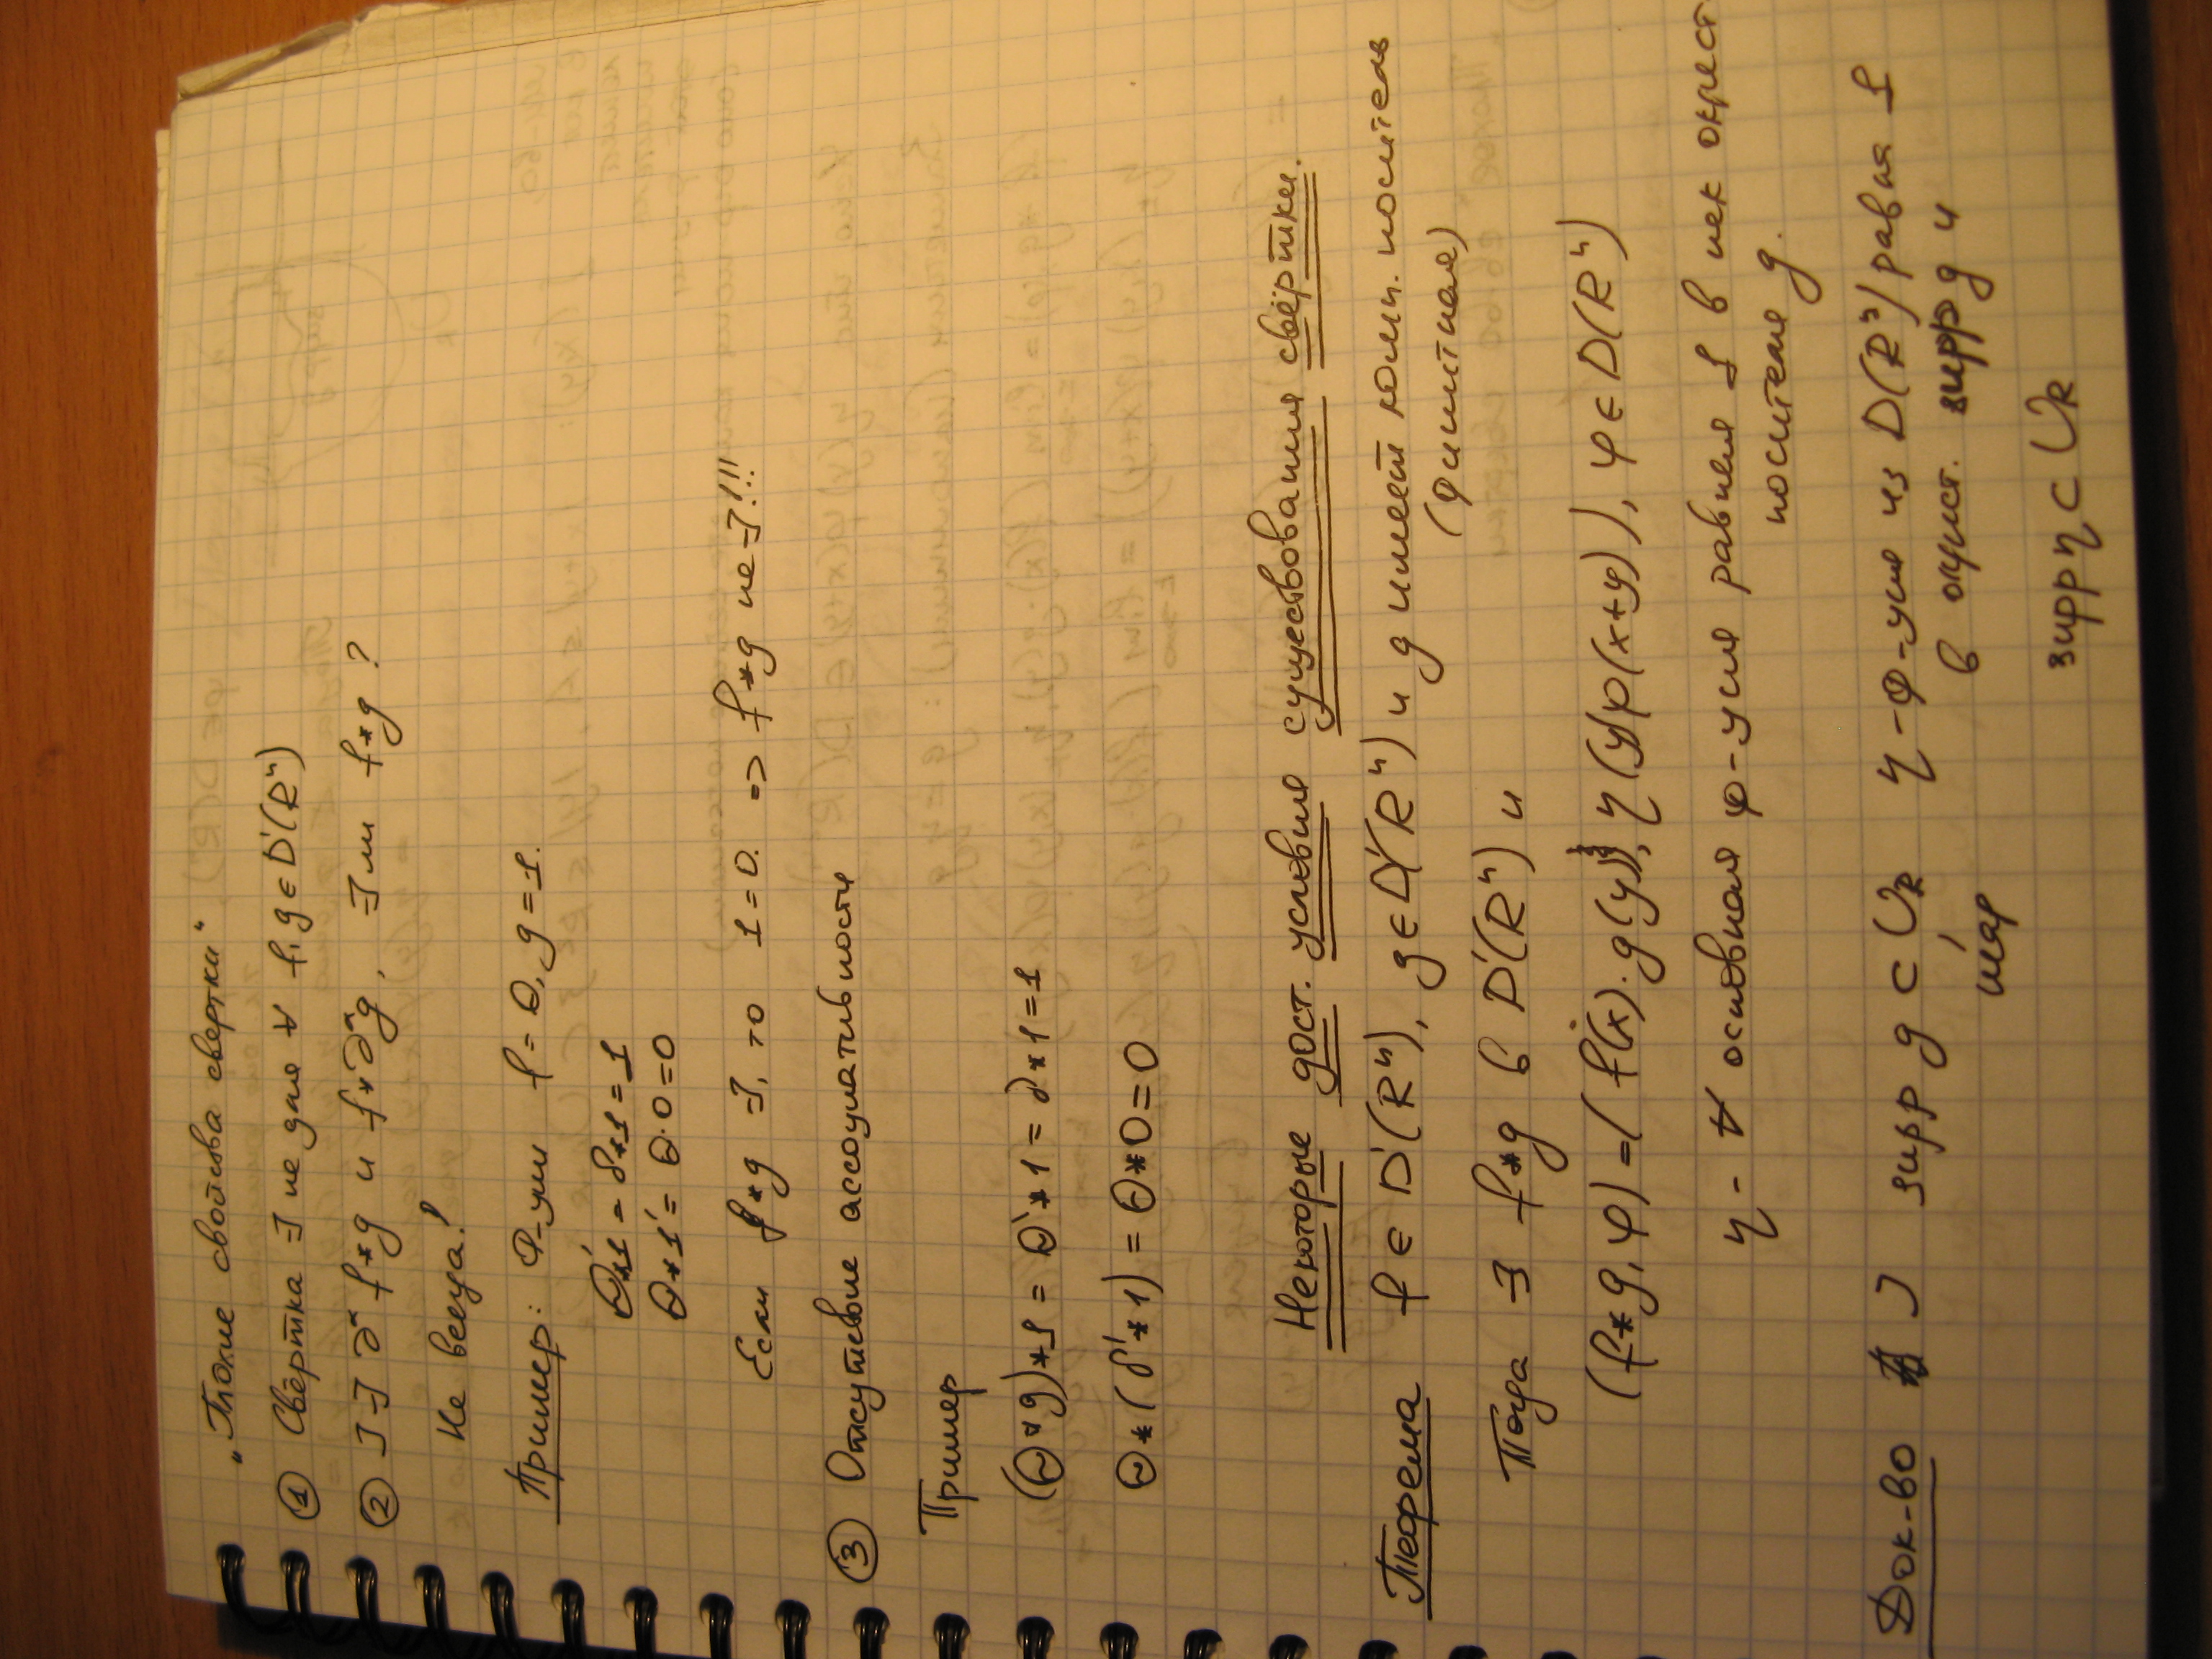 „Плохие свойства свертки"
① Свёртка ∃ не для ∀ f, g ∈ D'(Rⁿ)
② ]∃ ∂ᵅ f*g и f*∂ᵅg, ∃ ли f*g ?
Не всегда!
Пример: Ф-ции f = θ, g = 1.
θ'*1 = δ*1 = 1
θ*1' = θ·0 = 0
Если f*g ∃, то 1 = 0. => f*g не ∃!!!
③ Отсутствие ассоциативности
Пример
(θ*g)*1 = θ'*1 = δ*1 = 1
θ*(δ'*1) = θ*0 = 0
Некоторые дост. условия существования свёртки.
Теорема f ∈ D'(Rⁿ), g ∈ D'(Rⁿ) и g имеет комп. носитель
(финитная)
Тогда ∃ f*g в D'(Rⁿ) и
(f*g, φ) = (f(x)·g(y), η(y)φ(x+y)), φ ∈ D(Rⁿ)
η - ∀ основная ф-ция равная 1 в нек окрест.
носителя g.
Док-во ] supp g ⊂ U_R η - ф-ция из D(Rⁿ) равая 1
шар
в окрест. supp g и
supp η ⊂ U_R